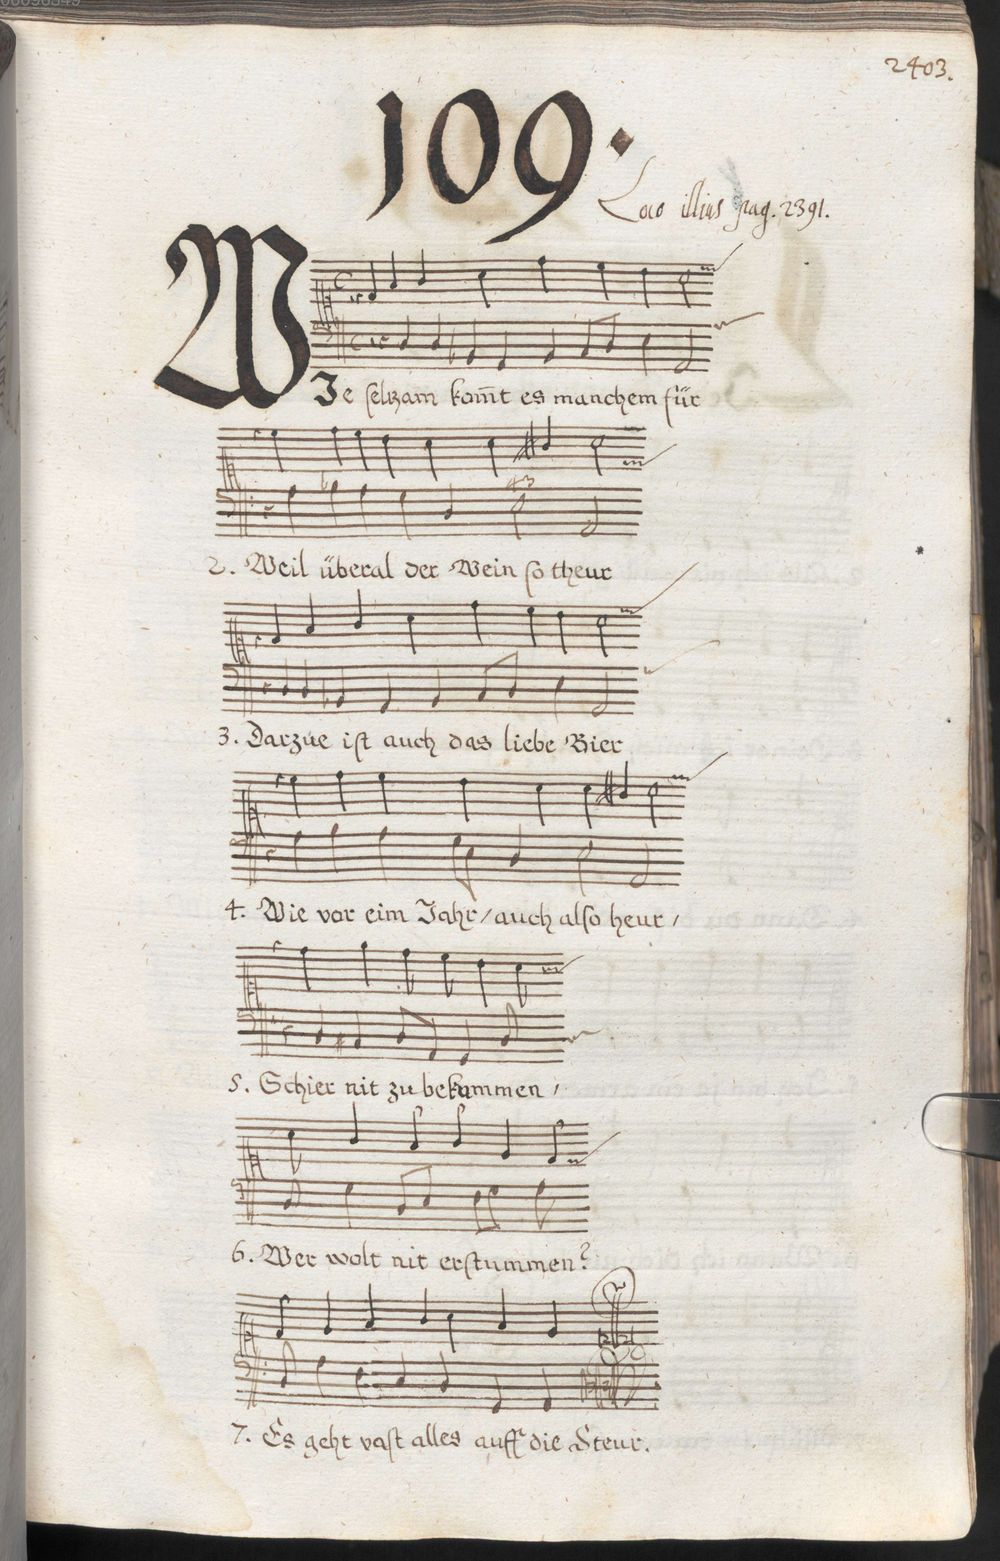 2403.
109.
Loco illius pag. 2391.
WIe selzam kom̄t es manchem für
43
2. Weil überal der Wein so theur
3. Darzue ist auch das liebe Bier
4. Wie vor eim Jahr/ auch also heur/
5. Schier nit zu bekommen/
6. Wer wolt nit erstummen?
7. Es geht vast alles auff die Steur.